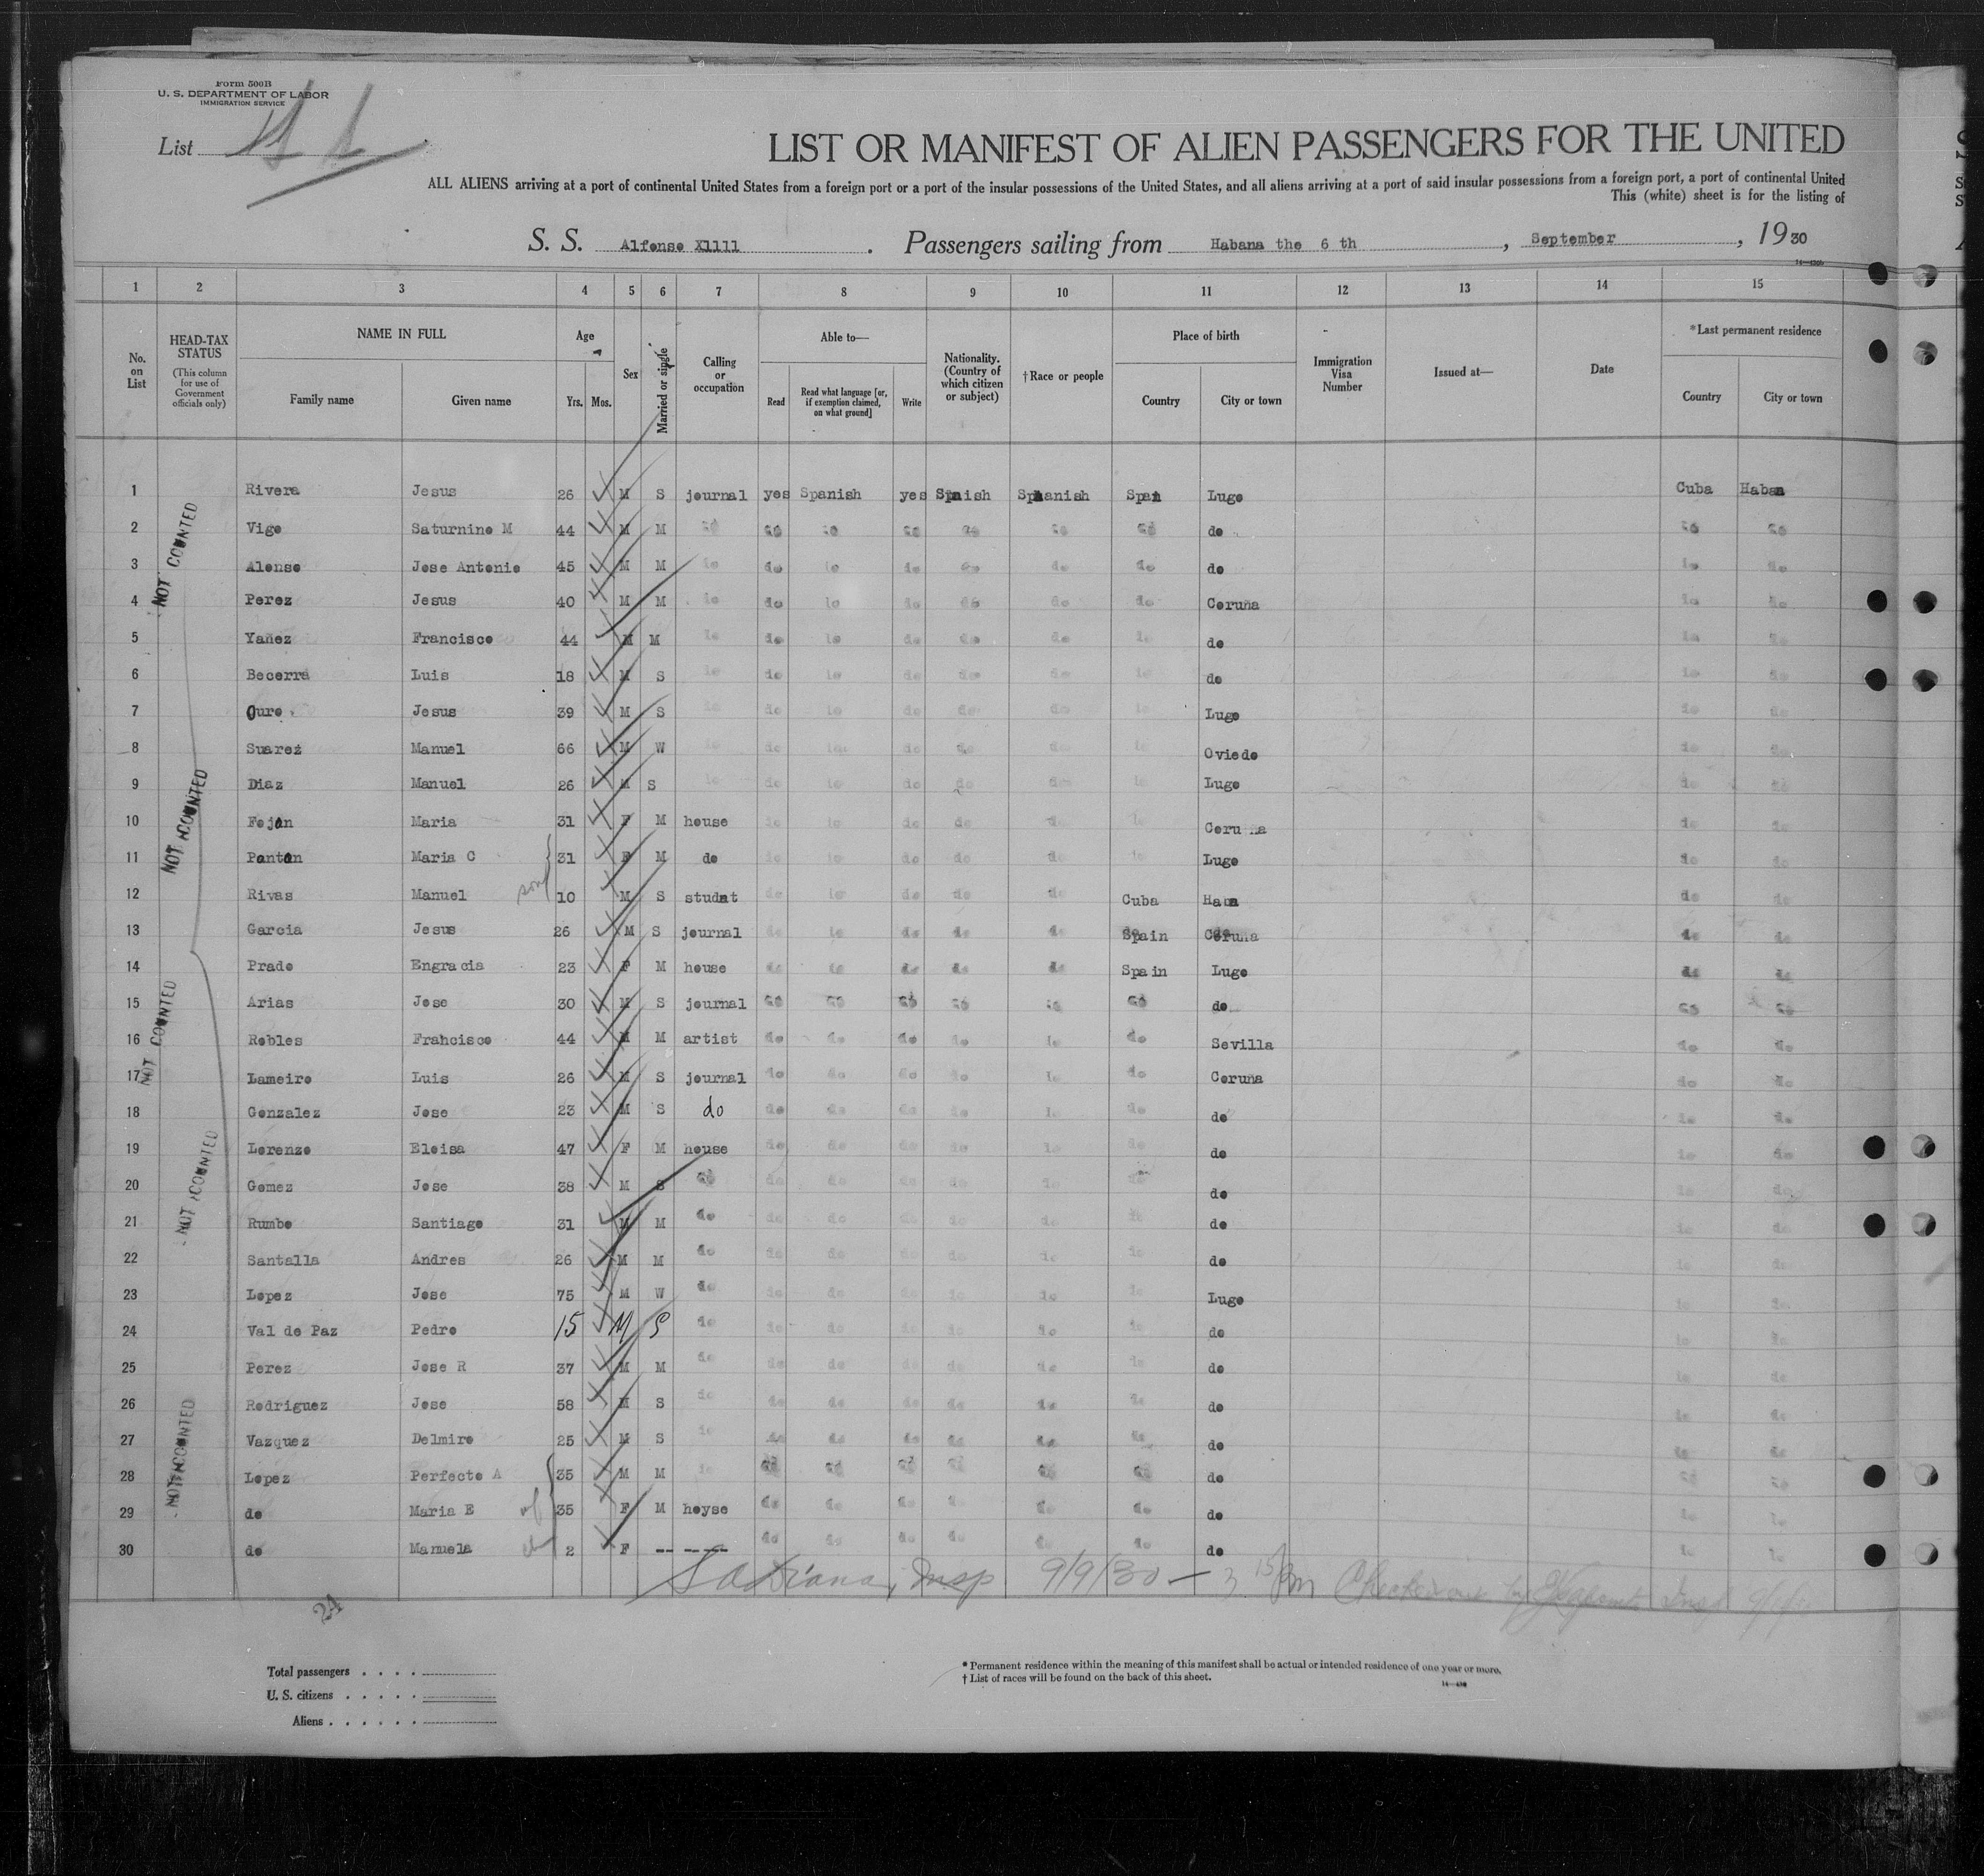 Form 500B
U. S. DEPARTMENT OF LABOR
IMMIGRATION SERVICE
List
LIST OR MANIFEST OF ALIEN PASSENGERS FOR THE UNITED
ALL ALIENS arriving at a port of continental United States from a foreign port or a port of the insular possessions of the United States, and all aliens arriving at a port of said insular possessions from a foreign port, a port of continental United
This (white) sheet is for the listing of
S. S. Alfonso X1111 . Passengers sailing from Habana the 6 th , September , 19 30
1 2 3 4 5 6 7 8 9 10 11 12 13 14 15
No. on List HEAD-TAX STATUS (This column for use of Government officials only) NAME IN FULL Family name Given name Age Yrs. Mos. Sex Married or single Calling or occupation Able to— Read Read what language [or, if exemption claimed, on what ground] Write Nationality. (Country of which citizen or subject) †Race or people Place of birth Country City or town Immigration Visa Number Issued at— Date *Last permanent residence Country City or town
1 Rivera Jesus 26 M S journal yes Spanish yes Spnish Sphanish Span Lugo Cuba Haban
2 Vigo Saturnino M 44 M M do do do do do do do do do do
3 Alonso Jose Antonio 45 M M do do do do do do do do do do
4 Perez Jesus 40 M M do do do do do do do Coruña do do
5 Yañez Francisco 44 M M do do do do do do do do do do
6 Becerra Luis 18 M S do do do do do do do do do do
7 Oure Jesus 39 M S do do do do do do do Lugo do do
8 Suarez Manuel 66 M W do do do do do do do Oviedo do do
9 Diaz Manuel 26 M S do do do do do do do Lugo do do
10 Fojon Maria 31 F M house do do do do do do Coru ña do do
11 Panton Maria C 31 F M do do do do do do do Lugo do do
12 Rivas Manuel son 10 M S studnt do do do do do Cuba Haba do do
13 Garcia Jesus 26 M S journal do do do do do Spain Coruña do do
14 Prado Engracia 23 F M house do do do do do Spain Lugo do do
15 Arias Jose 30 M S journal do do do do do do do do do
16 Robles Frahcisco 44 M M artist do do do do do do Sevilla do do
17 Lameiro Luis 26 M S journal do do do do do do Coruña do do
18 Gonzalez Jose 23 M S do do do do do do do do do do
19 Lorenzo Eloisa 47 F M house do do do do do do do do do
20 Gomez Jose 38 M S do do do do do do do do do do
21 Rumbo Santiago 31 M M do do do do do do do do do do
22 Santalla Andres 26 M M do do do do do do do do do do
23 Lopez Jose 75 M W do do do do do do do Lugo do do
24 Val de Paz Pedro 15 M S do do do do do do do do do do
25 Perez Jose R 37 M M do do do do do do do do do do
26 Rodriguez Jose 58 M S do do do do do do do do do do
27 Vazquez Delmiro 25 M S do do do do do do do do do do
28 Lopez Perfecto A 35 M M do do do do do do do do do do
29 do Maria E wf 35 F M heyse do do do do do do do do do
30 do Manuela ch 2 F -- --- do do do do do do do do do
NOT COUNTED
NOT COUNTED
NOT COUNTED
NOT COUNTED
NOT COUNTED
Insp 9/9/30 — 3 15 Pm Checked out by Insp
24
Total passengers
U. S. citizens
Aliens
* Permanent residence within the meaning of this manifest shall be actual or intended residence of one year or more.
† List of races will be found on the back of this sheet.